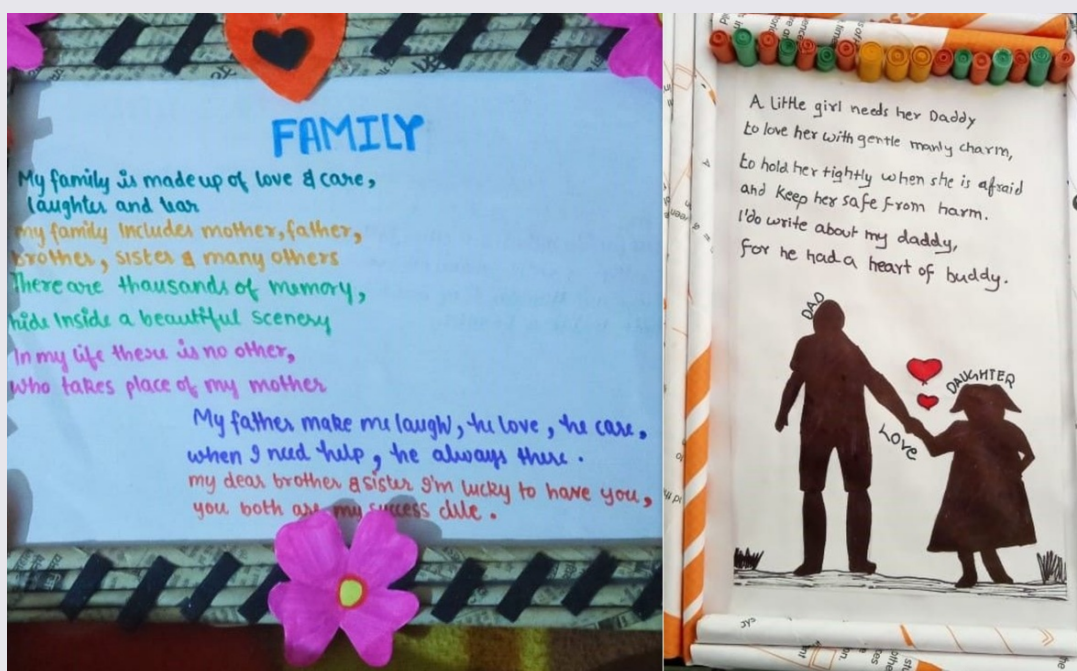 FAMILY
My family is made up of love & care,
laughter and bar
my family Includes mother, father,
brother, sister & many others
There are thousands of memory,
hide Inside a beautiful scenery
In my life there is no other,
who takes place of my mother
My father make me laugh, he love, he care,
when I need help, he always there.
my dear brother & sister I'm lucky to have you,
you both are my success clue.
A little girl needs her Daddy
to love her with gentle manly charm,
to hold her tightly when she is afraid
and keep her safe from harm.
I'do write about my daddy,
for he had a heart of buddy.
DAD
DAUGHTER
LOVE